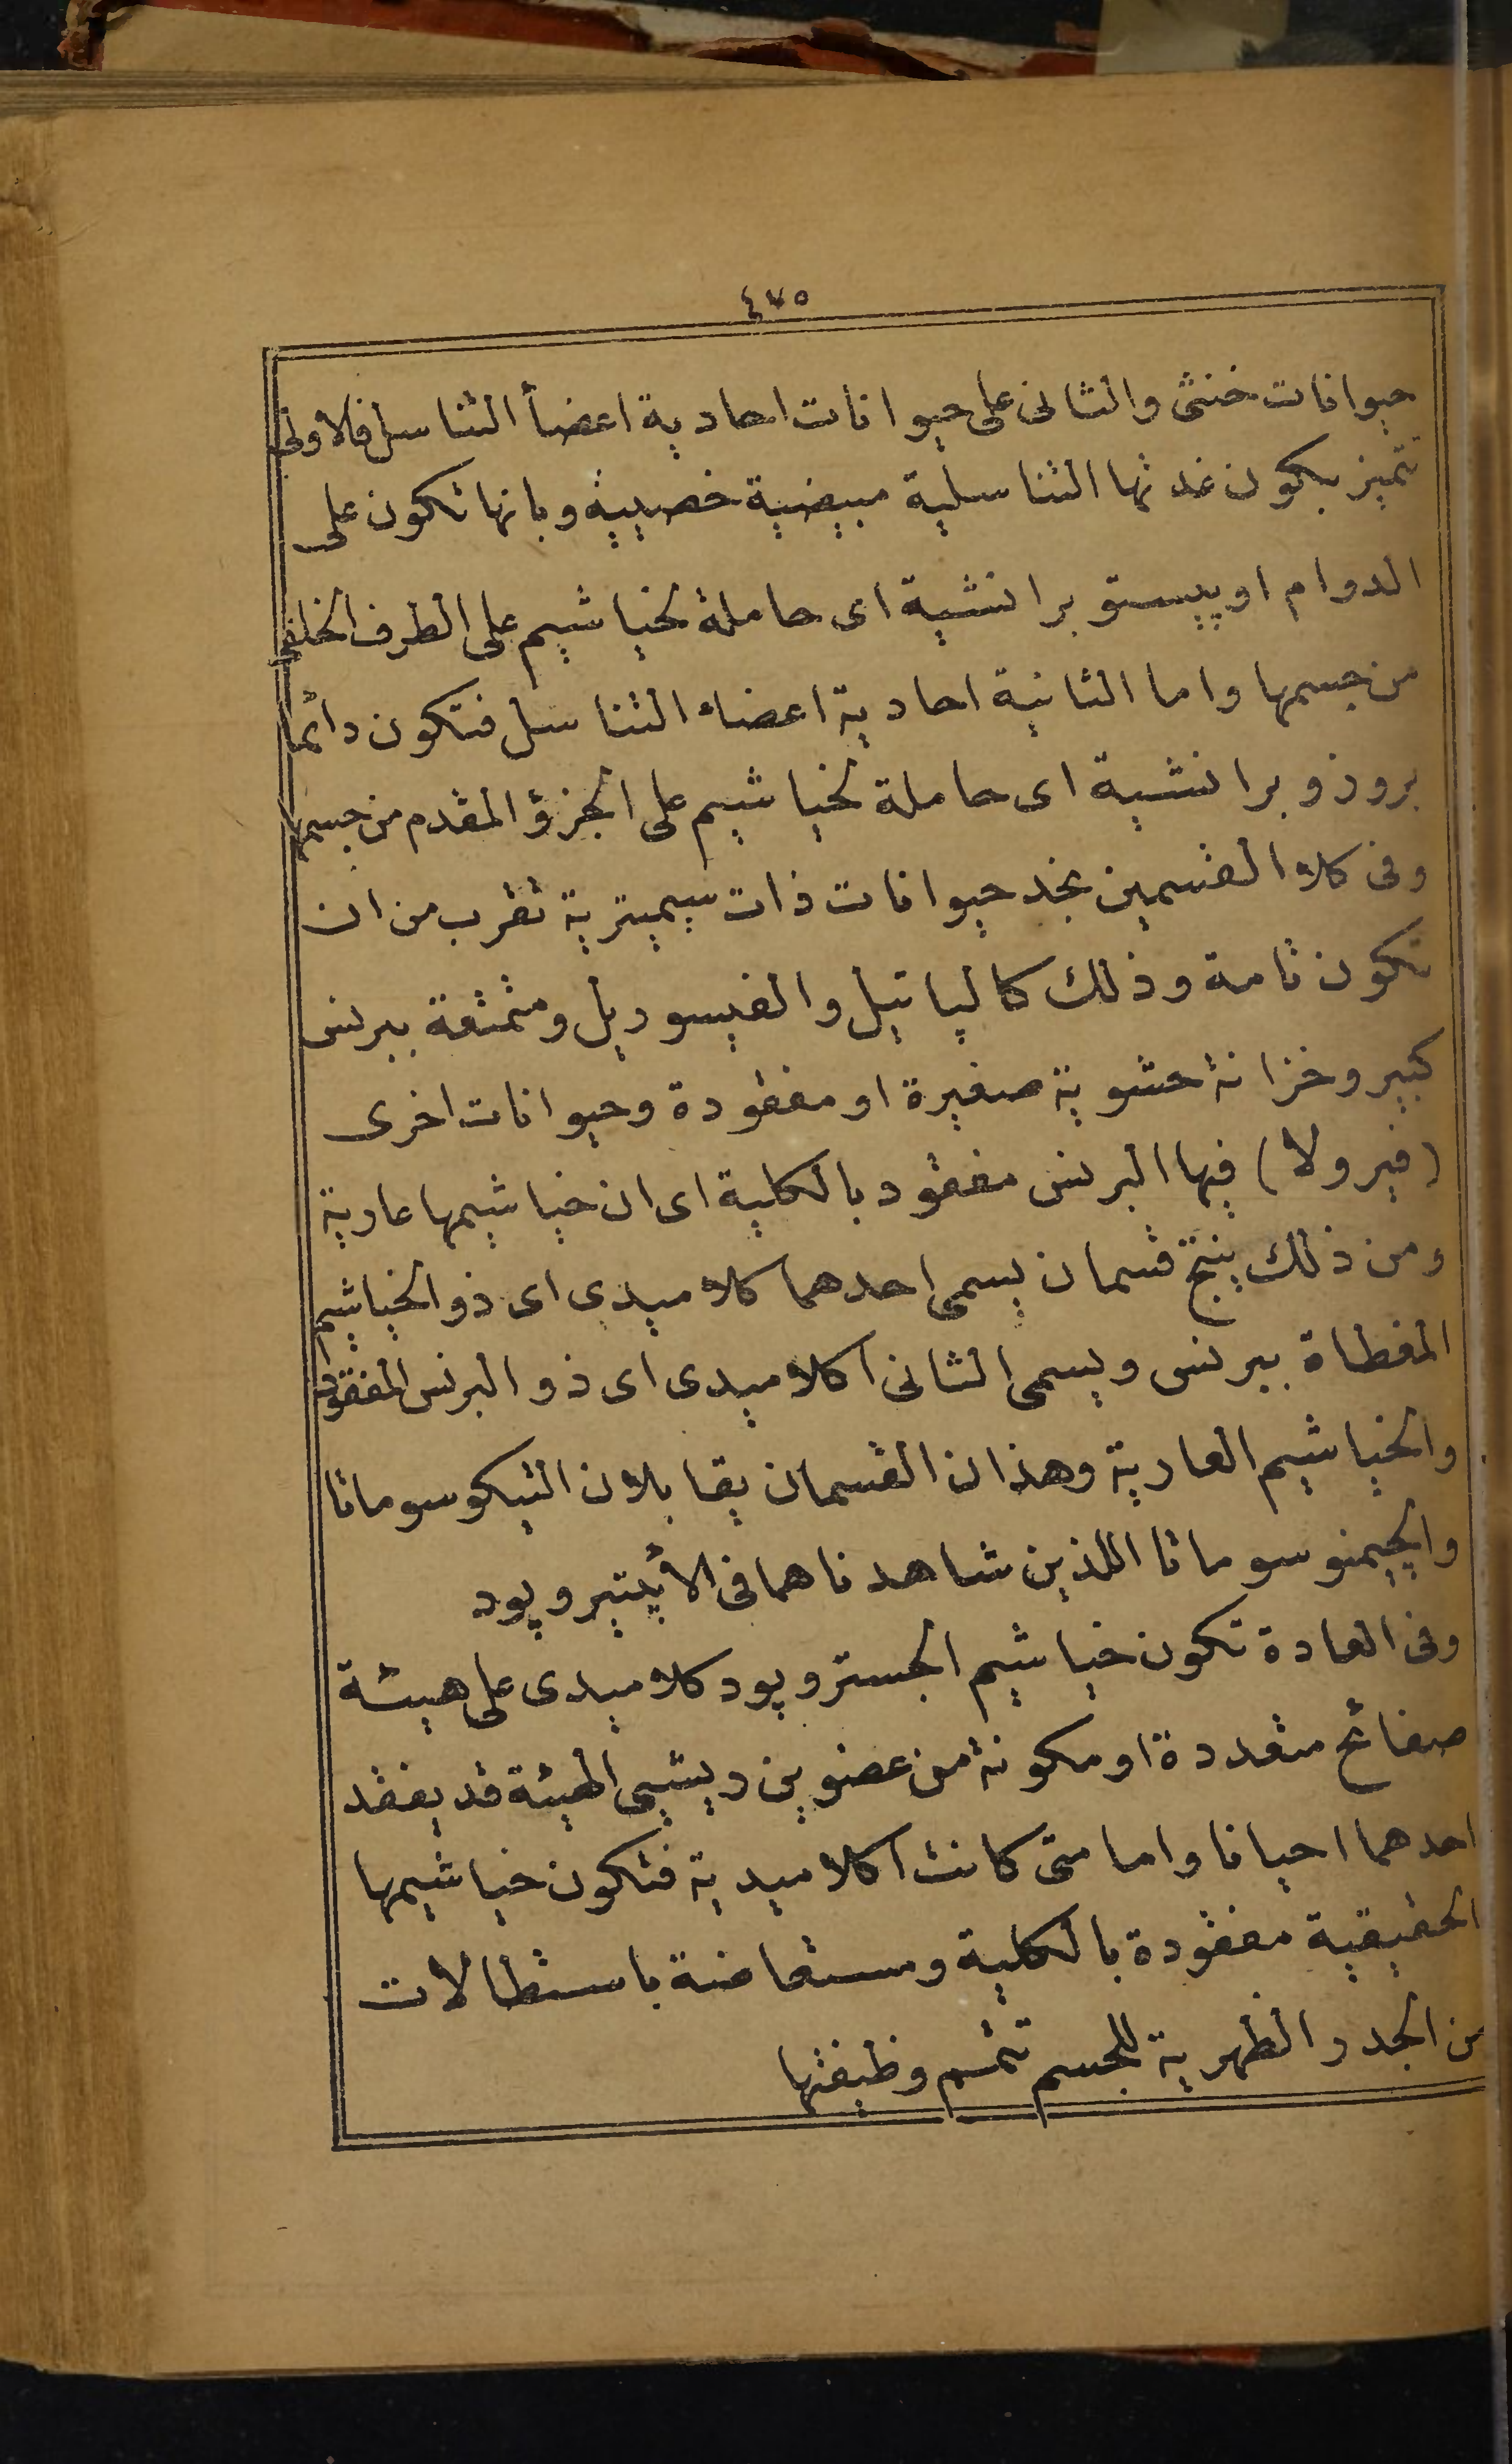 ٤٧٥
حيوانات خنثى والثانى على حيوانات احادية اعضأ التناسل فالاولى
تتميز بكون غدتها التناسلية مبيضية خصييه وبانها تكون على
الدوام اوپيستو برانشية اى حاملة لخياشيم على الطرف الخلفى
من جسمها واما الثانية احادية اعضاء التناسل فتكون دائما
بروزو برانشية اى حاملة لخياشيم على الجزؤ المقدم من جسمها
وفى كلا القسمين نجد حيوانات ذات سيميترية تقرب من ان
تكون تامة وذلك كالپاتيل والفيسوريل ومتمتعة ببرنس
كبير وخزانة حشوية صغيرة او مفقودة وحيوانات اخرى
(فيرولا) فيها البرنس مفقود بالكلية اى ان خياشيمها عارية
ومن ذلك ينتج قسمان يسمى احدهما كلاميدى اى ذو الخياشيم
المغطاة ببرنس ويسمى الثانى اكلاميدى اى ذو البرنس المفقود
والخياشيم العارية وهذان القسمان يقابلان التيكوسوماتا
والجيمنوسوماتا اللذين شاهدناهما فى الأپتيروپود
وفى العادة تكون خياشيم الجستروپود كلاميدى على هيئة
صفائح متعددة او مكونة من عضوين ريشيى الهيئة قد يفقد
احدهما احيانا واما متى كانت اكلاميدية فتكون خياشيمها
الحقيقية مفقودة بالكلية ومستعاضة باستطالات
من الجدر الظهرية للجسم تتمم وظيفتها